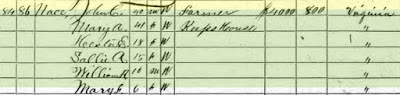 84 86 Nace, John C. 40 m W Farmer $4000 800 Virginia
Mary A. 41 f W Keeps House "
Hester E. 18 f W "
Sallie A. 15 f W "
William R. 10 m W "
Mary F. 6 f W "